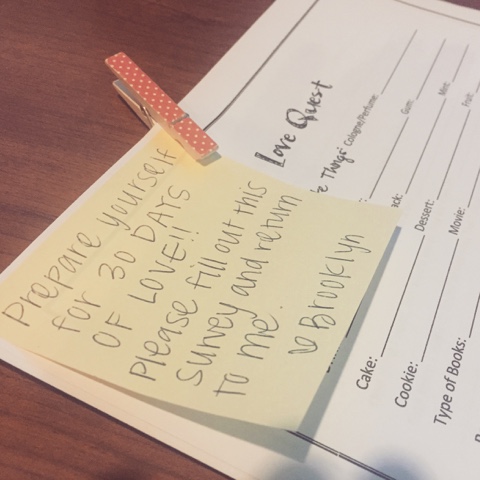 Prepare yourself
for 30 DAYS
OF LOVE!!
Please fill out this
survey and return
to me.
♡ Brooklyn
Love Quest
Things
Cologne/Perfume:
Gum:
Mint:
Fruit:
Dessert:
Movie:
Cake:
Cookie:
Type of Books: